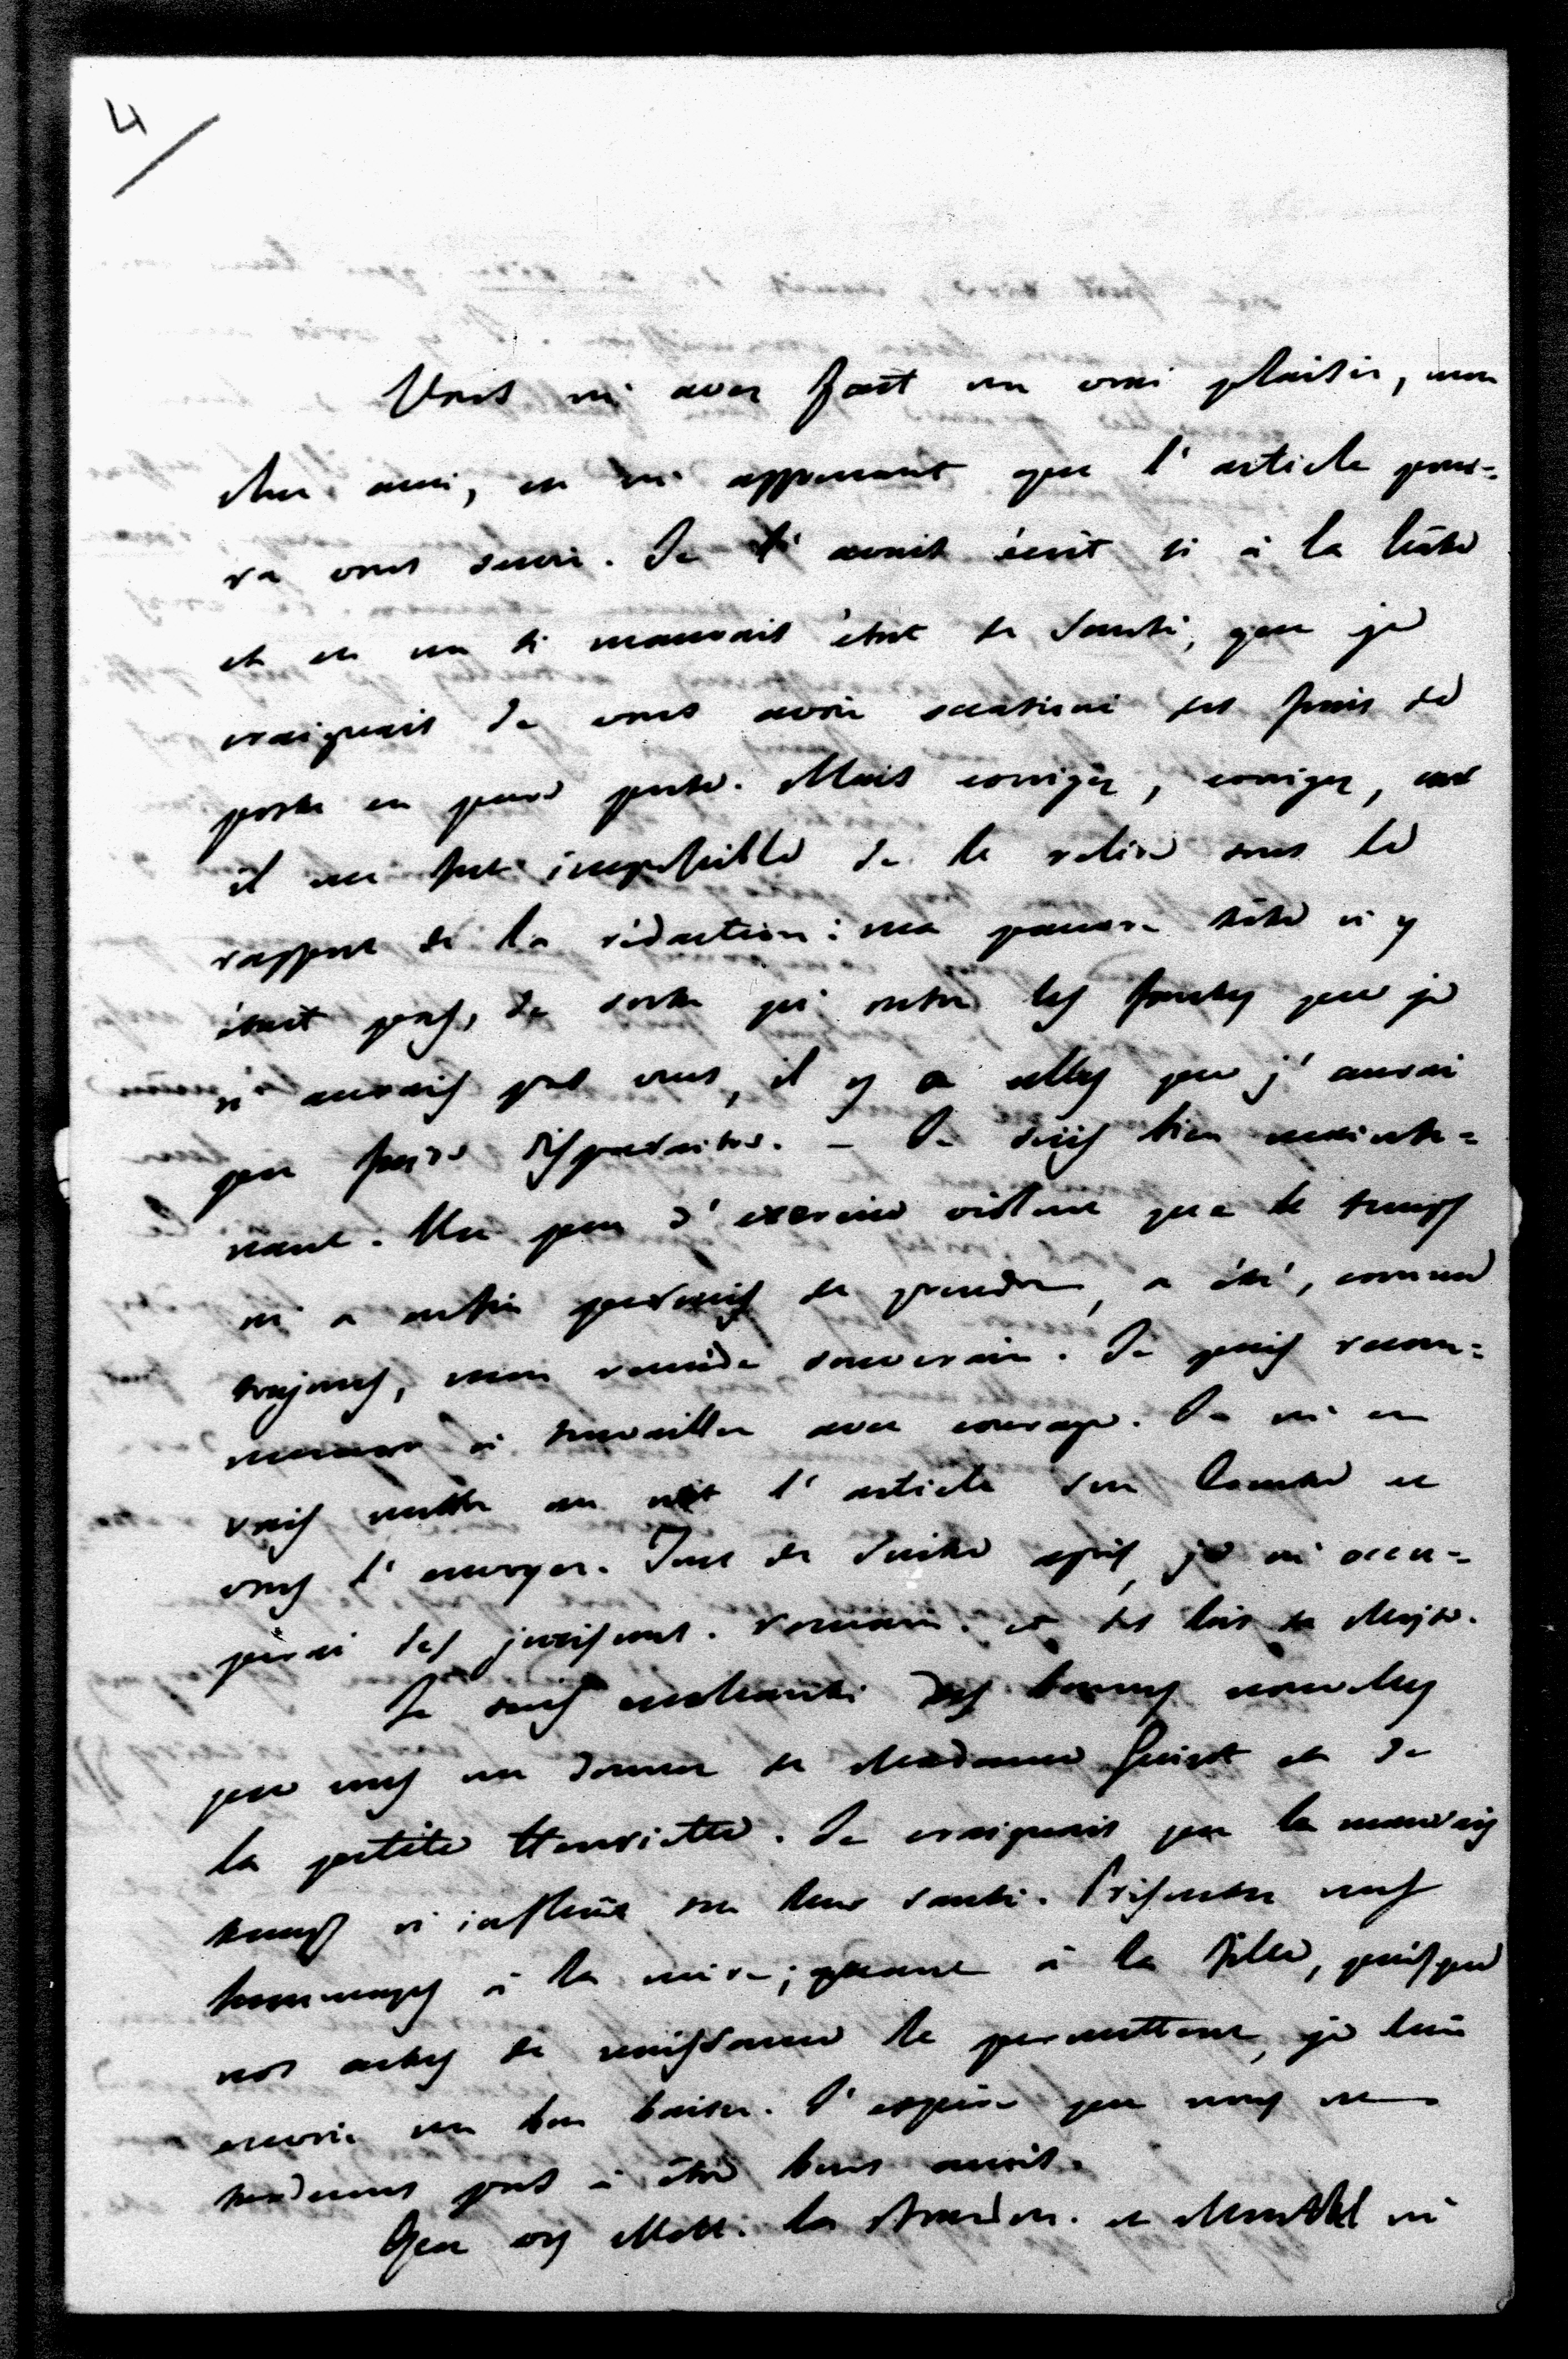 4
Vous m'avez fait un vrai plaisir, mon
cher ami, en m'apprenant que l'article pour=
ra vous servir. Je l'avais écrit si à la hâte
et en un si mauvais état de santé, que je
craignais de vous avoir occasioné des frais de
poste en pure perte. Mais corrigez, corrigez, car
il me fut impossible de le relire sous le
rapport de la rédaction : ma pauvre tête n'y
était pas, de sorte qu'outre les fautes que je
n'aurais pas vues, il y a celles que j'aurai
pu faire disparaitre. – Je suis bien mainte=
nant. Un peu d'exercice violent que le temps
m'a enfin permis de prendre, a été, comme
toujours, mon remède souverain. Je puis recom=
mencer à travailler avec courage. Je m'en
vais mettre au net l'article sur Comte et
vous l'envoyer. Tout de suite après, je m'occu=
perai des jurisconst. romains. et des lois de Moÿse.
Je suis enchanté des bonnes nouvelles
que vous me donnez de Madame Guizot et de
la petite Henriette. Je craignais que le mauvais
temps n'influât sur leur santé. Présentez mes
hommages à la mère; quant à la fille, puisque
nos actes de naissance le permettent, je lui
envoie un bon baiser. J'espère que nous ne
tarderons pas à être bons amis.
Que vos MM. la et m'